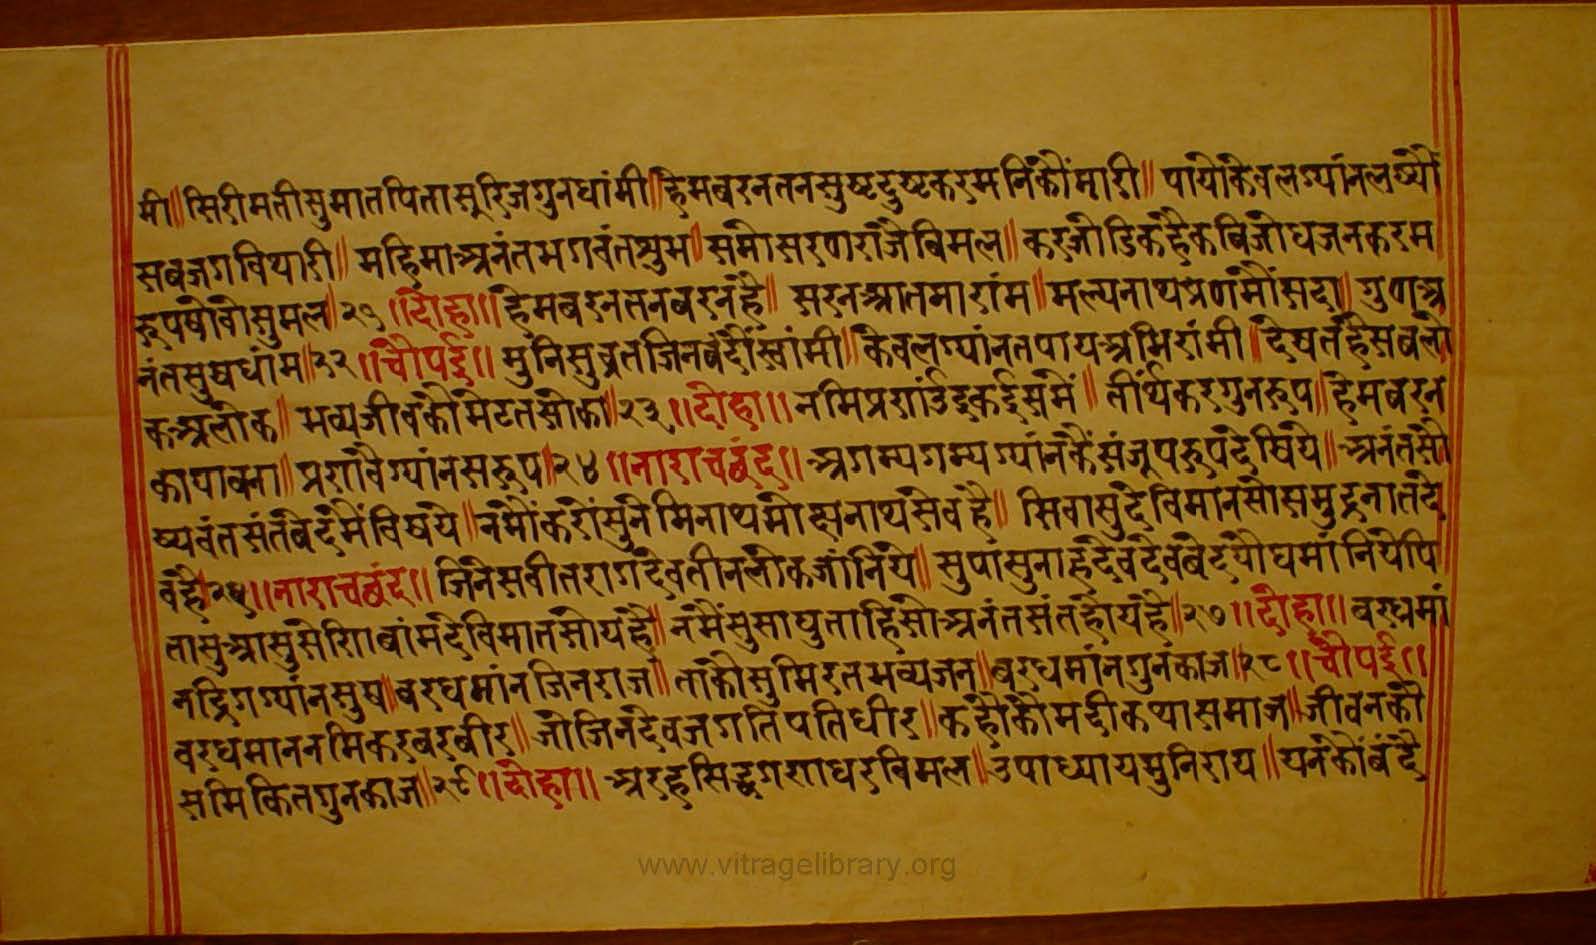 मी॥ सिरीमतीसुमातपितासूरिजगुनधांमी॥ हेमबरनतनसुष्टदुष्टकरमनिकौंमारी॥ पायोकेवलग्यांनलष्यौ
सबजगविथारी॥ महिमाअनंतभगवंतशुभ॥ समोसरणराजैबिमल॥ करजोडिकहैकबिजोधजनकरम
रुपषोवोसुमल॥२१॥दोहा॥ हेमबरनतनबरनहै॥ सरनआतमारांम॥ मल्यनाथप्रणमौंसदा॥ गुणअ
नंतसुषधांम॥२२॥चौपई॥ मुनिसुब्रतजिनबंदौंस्वांमी॥ केवलग्यांनतपायअभिरांमी॥ देषतहैसबलो
कअलोक॥ भव्यजीवकौमेटतसोक॥२३॥दोहा॥ नमिप्रगांईदुकईसमैं॥ तीर्थकरगुनरूप॥ हेमबरन
कापावना॥ प्रगावैग्यांनसरूप॥२४॥नाराचछंद॥ अगम्यगम्यग्यांनकैंसंजूपरूपदेषिये॥ अनंतसौ
ष्यवंतसंतबेदमैंविषये॥ नमौंकरौंसुनेमिनाथमोक्षनाथसेवहै॥ सिवासुदेविमानसोसमुद्रनातदे
वहै॥२५॥नाराचछंद॥ जिनेसवीतरागदेवतीनलोकजांनिये॥ सुपासुनाहदेवदेवबेदयौघमांनियेपि
तासुआसुसेणिबांमदेविमातसोयहै॥ नमैंसुसाधुताहिसोअनंतसंतहोयहै॥२७॥दोहा॥ बरधमां
नद्रिगग्यांनसुष॥ बरधमांनजिनराज॥ ताकौसुमिरतभव्यजन॥ बरधमांनगुनकाज॥२८॥चौपई॥
वरधमाननमिकरबरबीर॥ जोजिनदेवजगतिपतिधीर॥ कहौकौमदीकथासमाज॥ जीवनकौ
समिकितगुनकाज॥२९॥दोहा॥ अरहसिद्धगणधरविमल॥ उपाध्यायमुनिराय॥ यनकौंबंदै
www.vitragelibrary.org